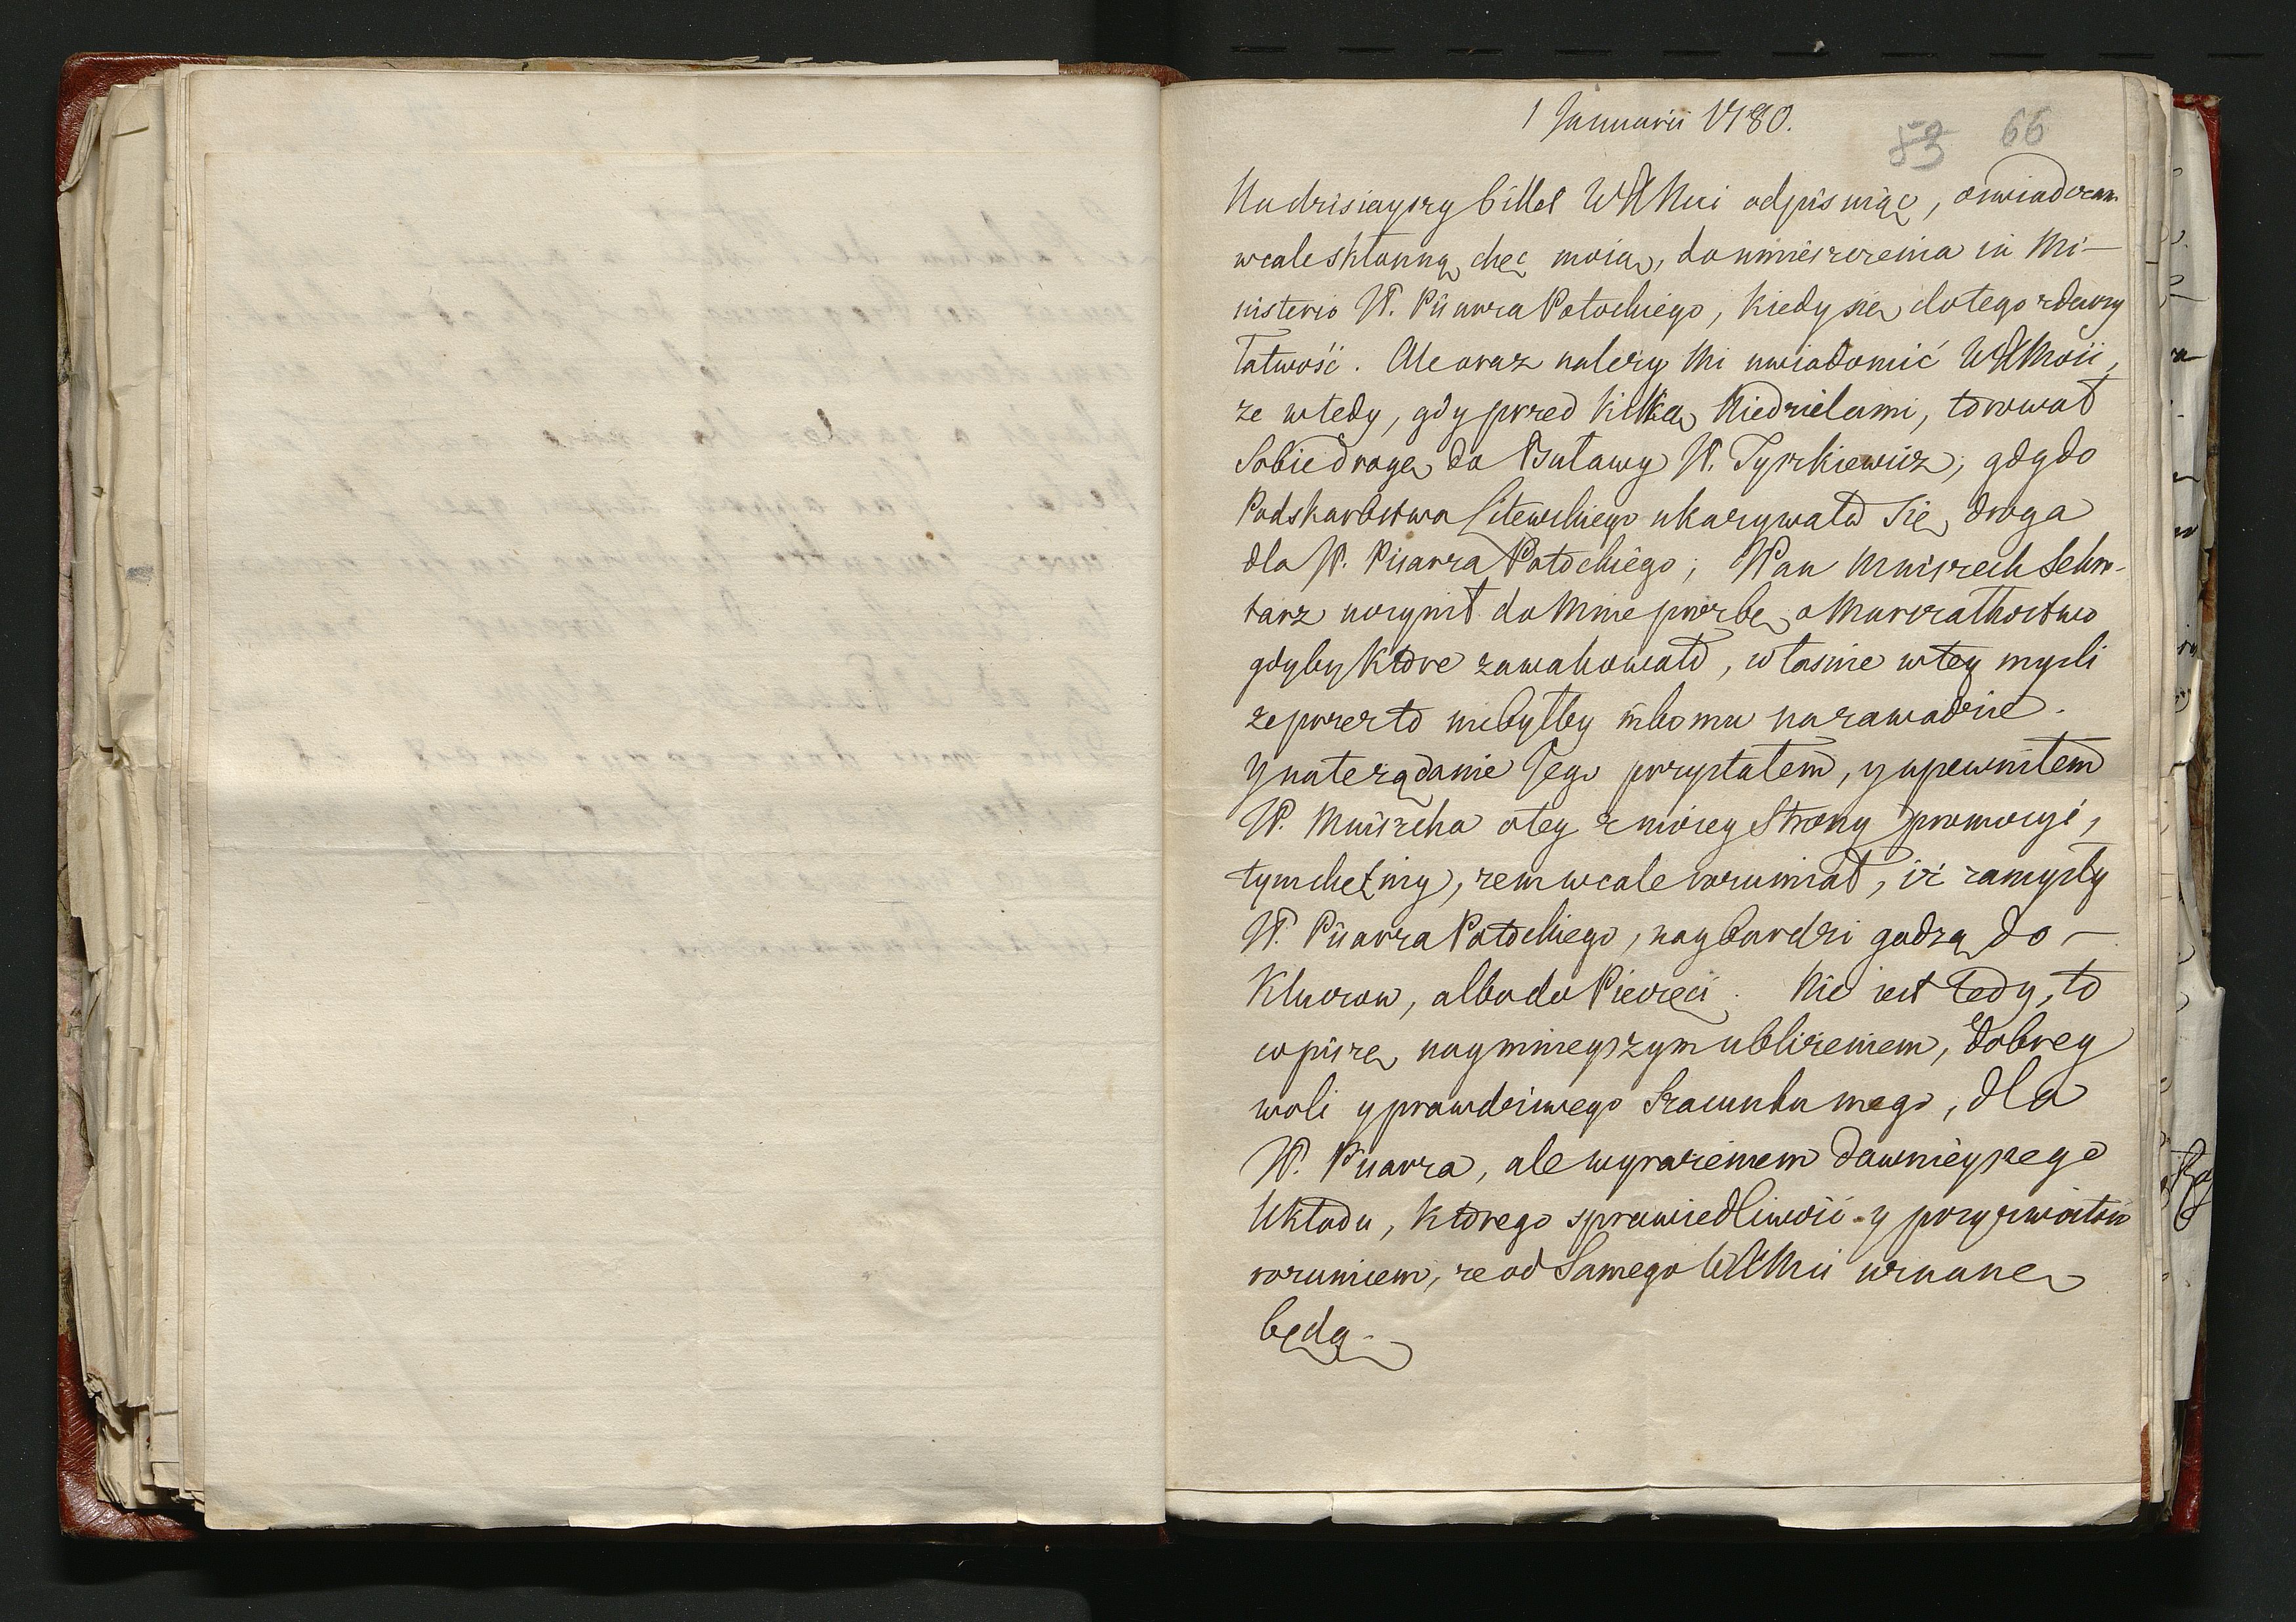 1 Januarii 1780.
53 66
Na dzisieyszy billet WMMci odpisuiąc, oswiadczam
wcale skłonną chęć moią, do umieszczenia in Mi-
nisterio JP. Pisarza Potockiego, kiedy się do tego zdarzy
łatwość. Ale oraz należy Mi uwiadomić WMMość,
ze wtedy, gdy przed kilką Niedzielami, torował
Sobie drogę do Buławy JP. Tyszkiewicz, gdy do
Podskarbstwa Litewskiego ukazywała się droga
dla JP. Pisarza Potockiego; JPan Mniszech Sekre-
tarz uczynił do Mnie prozbę o Marszałkostwo
gdyby ktore zawakowało, własnie w tey mysli
ze przez to niebyłby nikomu na zawadzie.
Y na te ządanie Jego przystałem, y upewniłem
JP. Mniszcha o tey z moiey Strony promocyi,
tym chętniy, zem wcale rozumiał, iż zamysły
JP. Pisarza Potockiego, naybardzi godzą do -
Kluczow, albo do Pieczęci. Nie iest tedy, to
co piszę naymnieyszym ubliżeniem, dobrey
woli y prawdziwego Szacunku mego, dla
JP. Pisarza, ale wyrażeniem dawnieyszego
Układu, ktorego sprawiedliwość y przyzwoitość
rozumiem, ze od Samego WMMci uznane
będą.